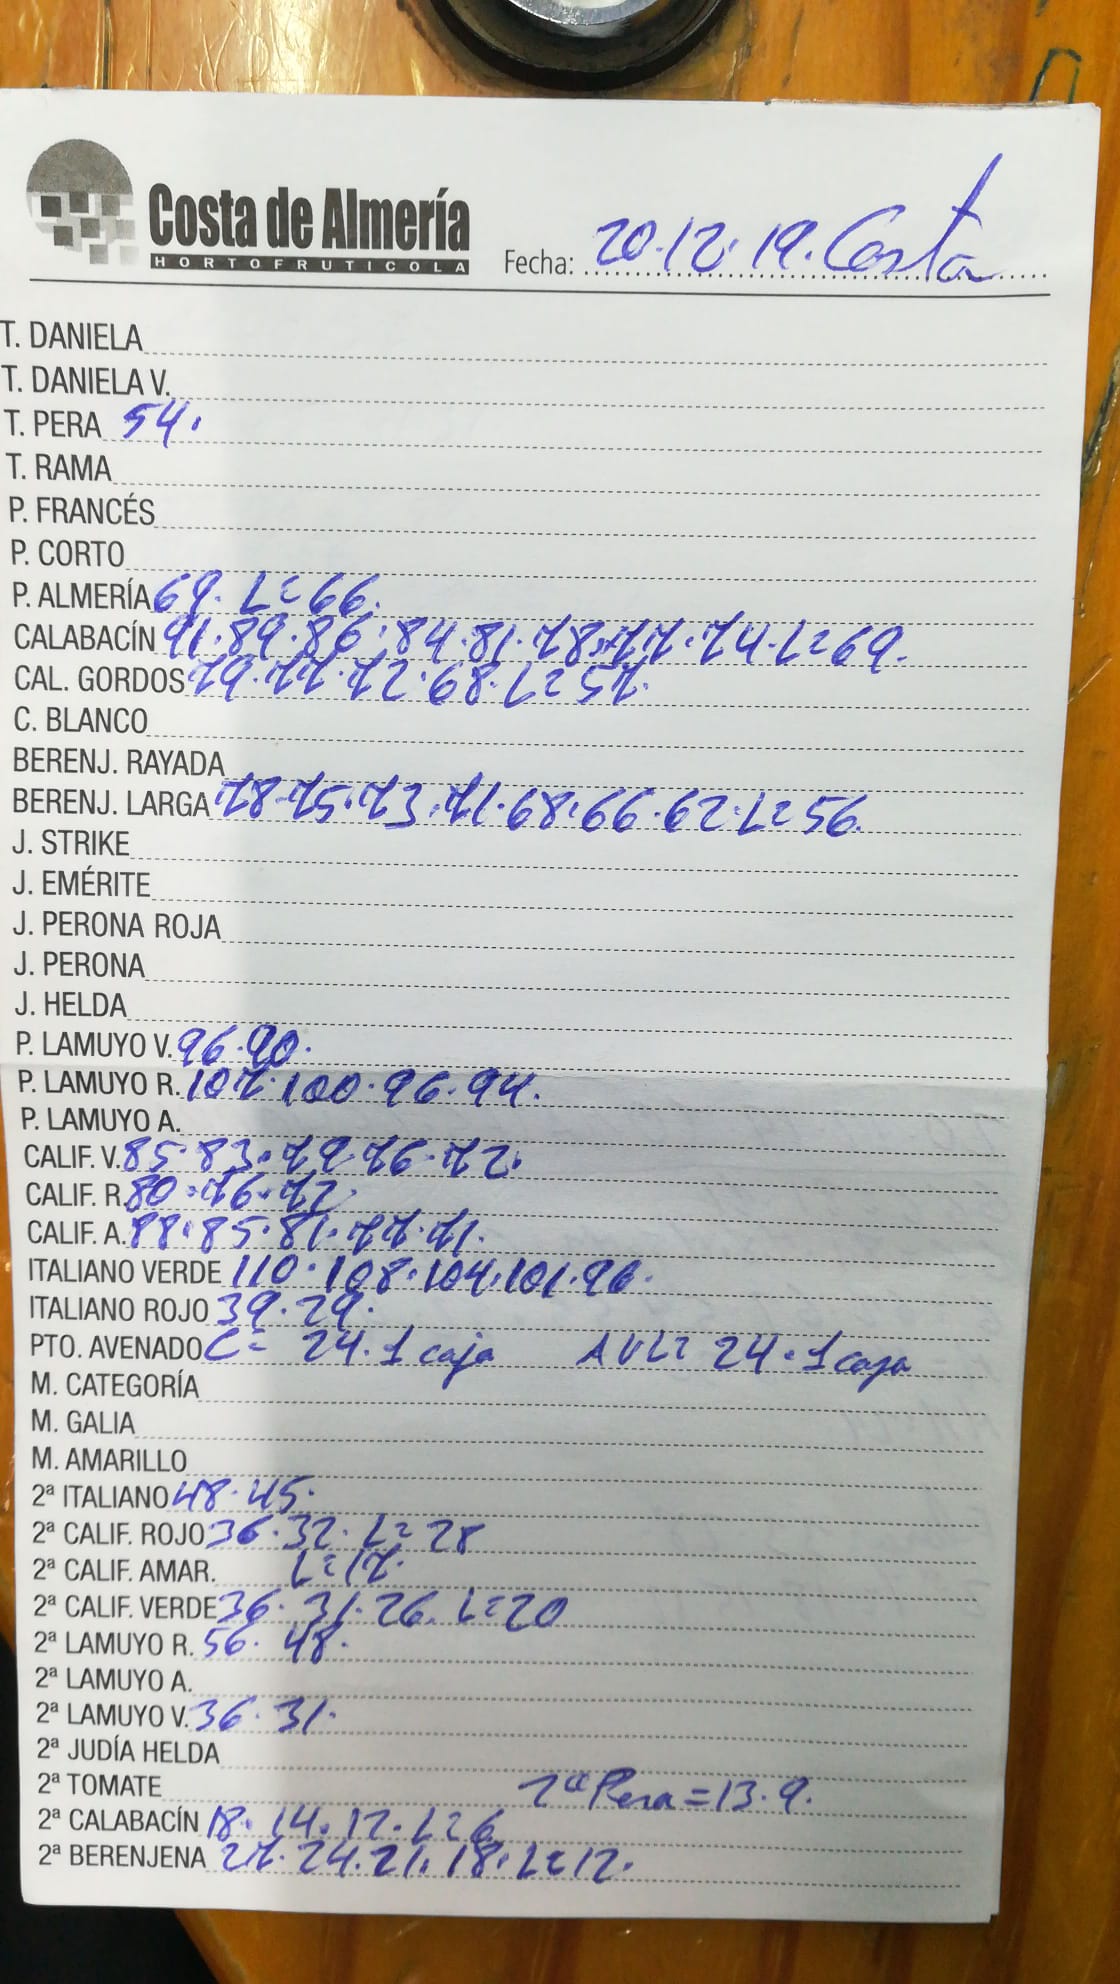 Costa de Almería
HORTOFRUTICOLA
Fecha: 20.12.19. Costa
T. DANIELA
T. DANIELA V.
T. PERA 54.
T. RAMA
P. FRANCÉS
P. CORTO
P. ALMERÍA 69. L=66.
CALABACÍN 91.89.86.84.81.78.77.74.L=69.
CAL. GORDOS 79.77.72.68.L=57.
C. BLANCO
BERENJ. RAYADA
BERENJ. LARGA 78.75.73.71.68.66.62.L=56.
J. STRIKE
J. EMÉRITE
J. PERONA ROJA
J. PERONA
J. HELDA
P. LAMUYO V. 96.90.
P. LAMUYO R. 107.100.96.94.
P. LAMUYO A.
CALIF. V. 85.83.79.76.72.
CALIF. R. 80.76.72
CALIF. A. 88.85.81.77.71.
ITALIANO VERDE 110.108.104.101.96.
ITALIANO ROJO 39.29.
PTO. AVENADO C= 24.1 caja AVL= 24.1 caja
M. CATEGORÍA
M. GALIA
M. AMARILLO
2ª ITALIANO 48.45.
2ª CALIF. ROJO 36.32. L=28
2ª CALIF. AMAR. L=17.
2ª CALIF. VERDE 36.31.26. L=20
2ª LAMUYO R. 56.48.
2ª LAMUYO A.
2ª LAMUYO V. 36.31.
2ª JUDÍA HELDA
2ª TOMATE 2ª Pera=13.9.
2ª CALABACÍN 18.14.12.L=6
2ª BERENJENA 27.24.21.18.L=12.